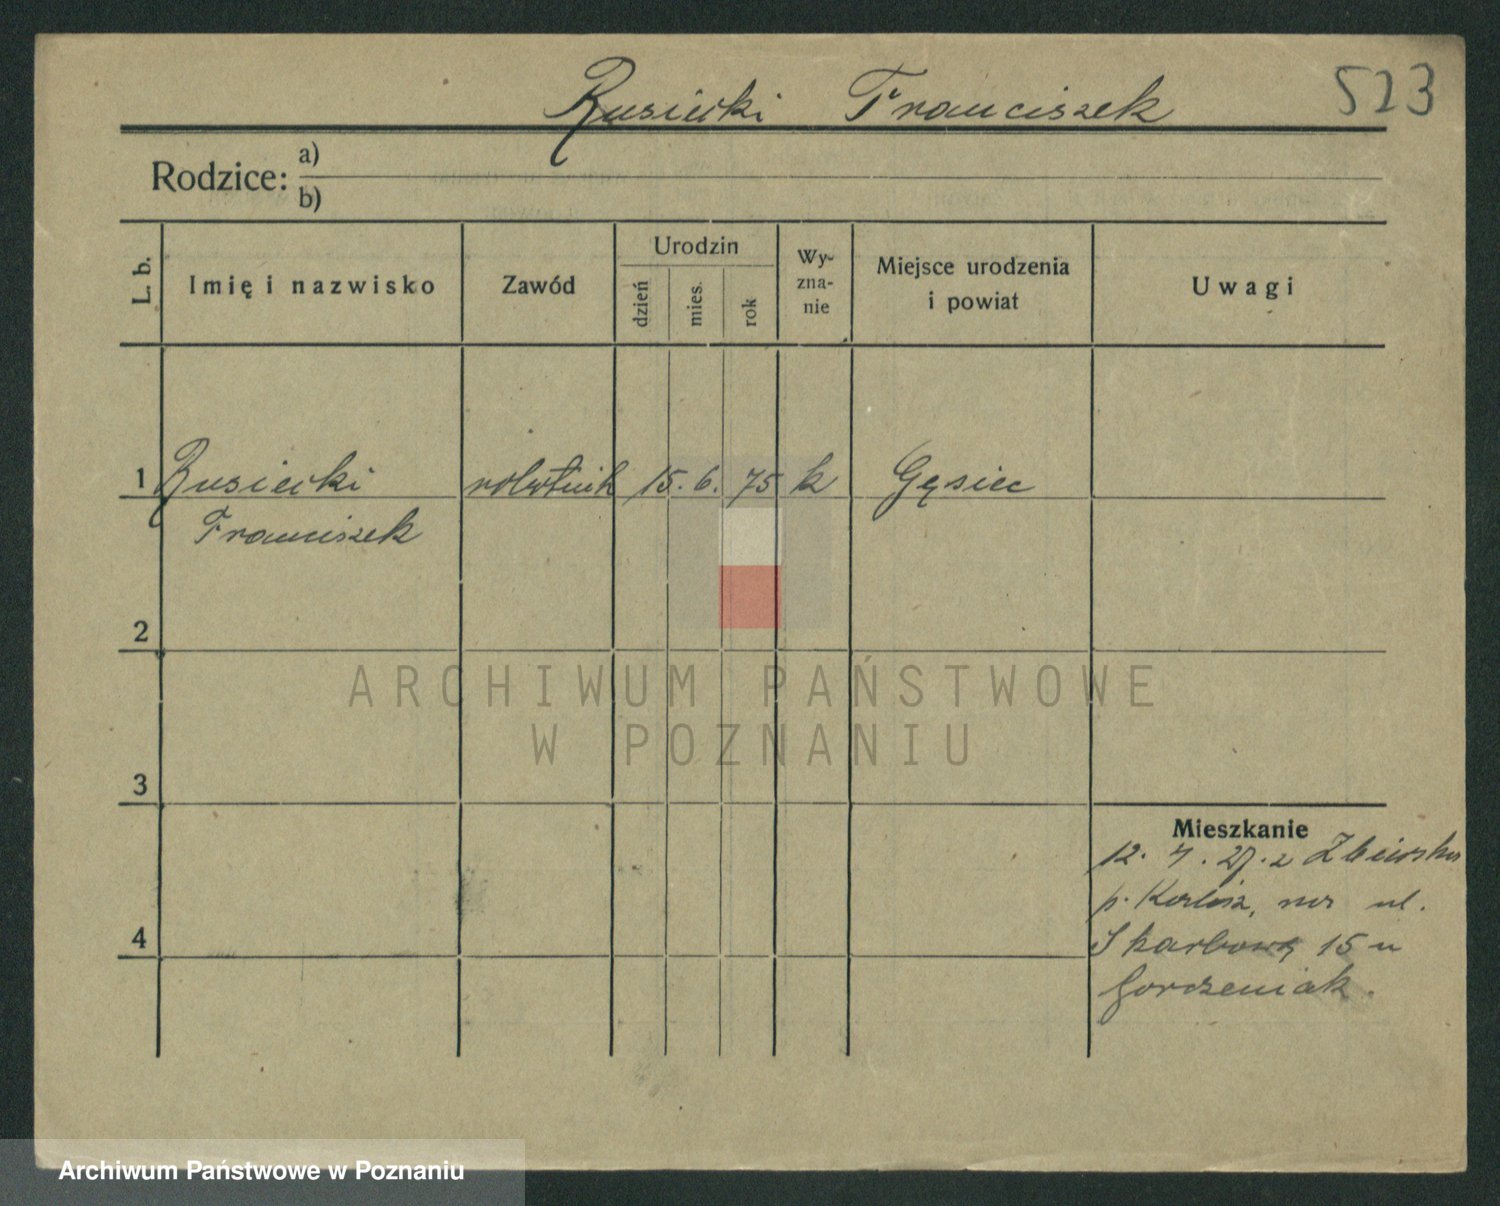 Rusiecki Franciszek 523
Rodzice: a)
b)
L. b. Imię i nazwisko Zawód Urodzin dzień mies. rok Wy-zna-nie Miejsce urodzenia i powiat Uwagi
1 Rusiecki robotnik 15. 6. 75 k Gęsiec
Franciszek
2
ARCHIWUM PAŃSTWOWE
W POZNANIU
3
Mieszkanie
12. 7. 27. z
p. na ul.
4 Skarbową 15 u
Gorczeniak.
Archiwum Państwowe w Poznaniu